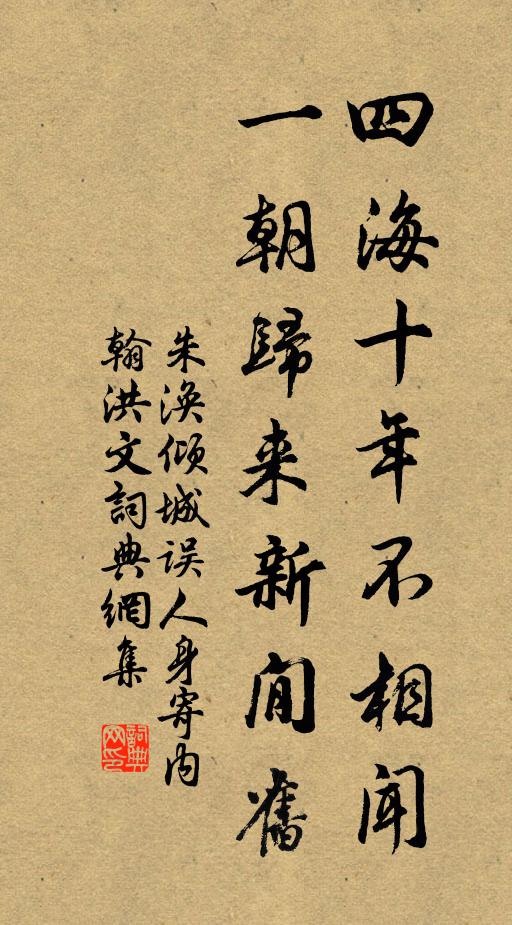 四海十年不相聞
一朝歸来新間舊
朱渙傾城误人身寄内
翰洪文詞典網集
詞典网印